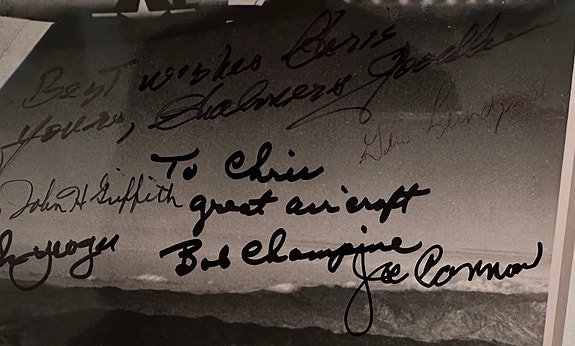 Best wishes Chris
Yours, Chalmers Goodlin
Gene Lundquist
To Chris
John H Griffith
great aircraft
Bob Champine
Joe Cannon